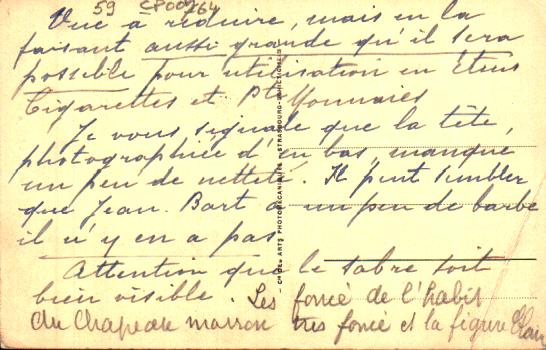 59 CP009264
Vue à réduire, mais en la
faisant aussi grande qu'il sera
possible pour utilisation en Etuis
Cigarettes et Pte Monnaies
Je vous signale que la tête,
photographiée d'en bas, manque
un peu de netteté. Il peut sembler
que Jean-Bart a un peu de barbe
il n'y en a pas
Attention que le sabre soit
bien visible. Les foncé de l'habit
du chapeau marron très foncé et la figure
Cie DES ARTS PHOTOMÉCANIQUES - STRASBOURG